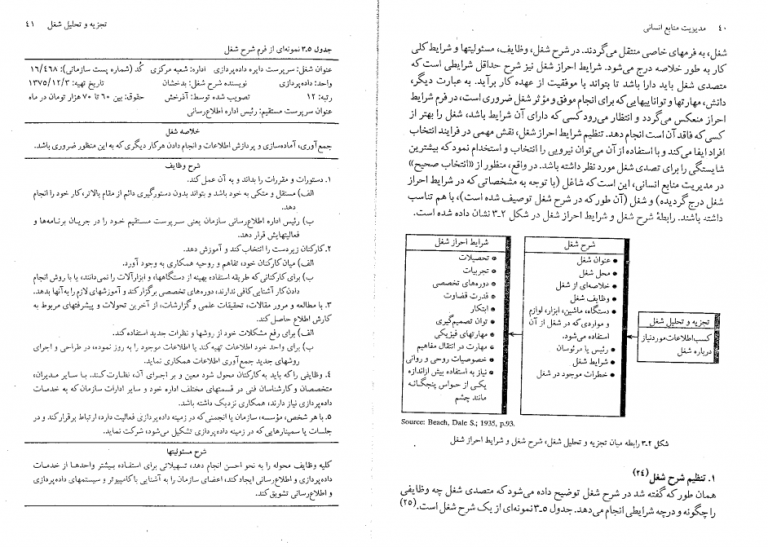 ۴۰ مدیریت منابع انسانی
شغل، به فرمهای خاصی منتقل می‌گردند. در شرح شغل، وظایف، مسئولیتها و شرایط کلی
کار به طور خلاصه درج می‌شود. شرایط احراز شغل نیز شرح حداقل شرایطی است که
متصدی شغل باید دارا باشد تا بتواند با موفقیت از عهده کار برآید. به عبارت دیگر،
دانش، مهارتها و تواناییهایی که برای انجام موفق و مؤثر شغل ضروری است، در فرم شرایط
احراز منعکس می‌گردد و انتظار می‌رود کسی که دارای آن شرایط باشد، شغل را بهتر از
کسی که فاقد آن است انجام دهد. تنظیم شرایط احراز شغل، نقش مهمی در فرایند انتخاب
افراد ایفا می‌کند و با استفاده از آن می‌توان نیرویی را انتخاب و استخدام نمود که بیشترین
شایستگی را برای تصدی شغل مورد نظر داشته باشد. در واقع، منظور از «انتخاب صحیح»
در مدیریت منابع انسانی، این است که شاغل (با توجه به مشخصاتی که در شرایط احراز
شغل درج گردیده) و شغل (آن طور که در شرح شغل توصیف شده است)، با هم تناسب
داشته باشند. رابطهٔ شرح شغل و شرایط احراز شغل در شکل ۲ـ۳ نشان داده شده است.
تجزیه و تحلیل شغل
کسب اطلاعات مورد نیاز
درباره شغل
شرح شغل
• عنوان شغل
• محل شغل
• خلاصه‌ای از شغل
• وظایف شغل
• دستگاه، ماشین، ابزار، لوازم
و موادی که در شغل از آن
استفاده می‌شود.
• رئیس یا مرئوسان
• شرایط شغل
• خطرات موجود در شغل
شرایط احراز شغل
• تحصیلات
• تجربیات
• دوره‌های تخصصی
• قدرت قضاوت
• ابتکار
• توان تصمیم‌گیری
• مهارتهای فیزیکی
• مهارت در انتقال مفاهیم
• خصوصیات روحی و روانی
• نیاز به استفاده بیش از اندازه
یکی از حواس پنجگانه
مانند چشم
Source: Beach, Dale S.; 1935, p.93.
شکل ۲ـ۳ رابطه میان تجزیه و تحلیل شغل، شرح شغل و شرایط احراز شغل
۱. تنظیم شرح شغل (۲۴)
همان طور که گفته شد در شرح شغل توضیح داده می‌شود که متصدی شغل چه وظایفی
را چگونه و در چه شرایطی انجام می‌دهد. جدول ۵ـ۳ نمونه‌ای از یک شرح شغل است. (۲۵)
تجزیه و تحلیل شغل ۴۱
جدول ۳ـ۵ نمونه‌ای از فرم شرح شغل
عنوان شغل: سرپرست دایره داده‌پردازی اداره: شعبه مرکزی کُد (شماره پست سازمانی): ۱۶/۴۶۸
واحد: داده‌پردازی نویسنده شرح شغل: بدخشان تاریخ تهیه: ۱۳۷۵/۱۲/۳
رتبه: ۱۲ تصویب شده توسط: آذرخش حقوق: بین ۶۰ تا ۷۰ هزار تومان در ماه
عنوان سرپرست مستقیم: رئیس اداره اطلاع‌رسانی
خلاصه شغل
جمع‌آوری، آماده‌سازی و پردازش اطلاعات و انجام دادن هر کار دیگری که به این منظور ضروری باشد.
شرح وظایف
۱. دستورات و مقررات را بداند و به آن عمل کند.
الف) مستقل و متکی به خود باشد و بتواند بدون دستورگیری دائم از مقام بالاتر، کار خود را انجام
دهد.
ب) رئیس اداره اطلاع‌رسانی سازمان یعنی سرپرست مستقیم خود را در جریان برنامه‌ها و
فعالیتهایش قرار دهد.
۲. کارکنان زیردست را انتخاب کند و آموزش دهد.
الف) میان کارکنان خود، تفاهم و روحیه همکاری به وجود آورد.
ب) برای کارکنانی که طریقه استفاده بهینه از دستگاهها، و ابزارآلات را نمی‌دانند، یا با روش انجام
دادن کار آشنایی کافی ندارند، دوره‌های تخصصی برگزار کند و آموزشهای لازم را به آنها بدهد.
۳. با مطالعه و مرور مقالات، تحقیقات علمی و گزارشات، از آخرین تحولات و پیشرفتهای مربوط به
کارش اطلاع حاصل کند.
الف) برای رفع مشکلات خود از روشها و نظرات جدید استفاده کند.
ب) برای واحد خود اطلاعات تهیه کند یا اطلاعات موجود را به روز نموده، در طراحی و اجرای
روشهای جدید جمع‌آوری اطلاعات همکاری نماید.
۴. وظایفی را که باید به کارکنان محول شود معین و بر اجرای آن، نظارت کند. با سایر مدیران،
متخصصان و کارشناسان فنی در قسمتهای مختلف اداره خود و سایر ادارات سازمان که به خدمات
داده‌پردازی نیاز دارند، همکاری نزدیک داشته باشد.
۵. با هر شخص، مؤسسه، سازمان یا انجمنی که در زمینه داده‌پردازی فعالیت دارد، ارتباط برقرار کند و در
جلسات یا سمینارهایی که در زمینه داده‌پردازی تشکیل می‌شود، شرکت نماید.
شرح مسئولیتها
کلیه وظایف محوله را به نحو احسن انجام دهد، تسهیلاتی برای استفاده بیشتر واحدها از خدمات
داده‌پردازی و اطلاع‌رسانی ایجاد کند، اعضای سازمان را به آشنایی با کامپیوتر و سیستمهای داده‌پردازی
و اطلاع‌رسانی تشویق کند.